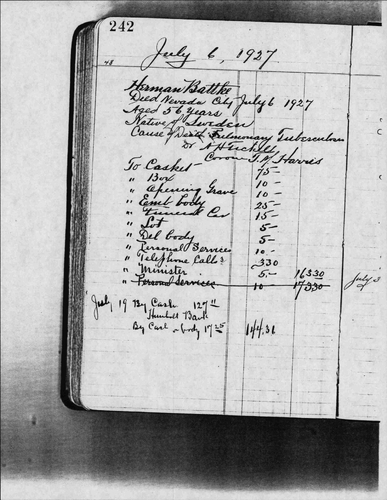 242
July 6, 1927
48
Herman Battke
Died Nevada City July 6 1927
Aged 56 years
Native of Sweden
Cause of Death Pulmonary Tuberculosis
Dr A H Tickell
Coroner T. J. Harris
To Casket 75-
" Box 10-
" Opening Grave 10-
" Emb body 25-
" Funeral Car 15-
" Lot 5-
" Del body 5-
" Personal Services 10-
" Telephone Calls 3 30
" Minister 5- 163.30
" Personal Services 10 173 30
July 19 By Cash 127 11
Humbolt Bank
By Cash on body 17 25 144.36
July 3